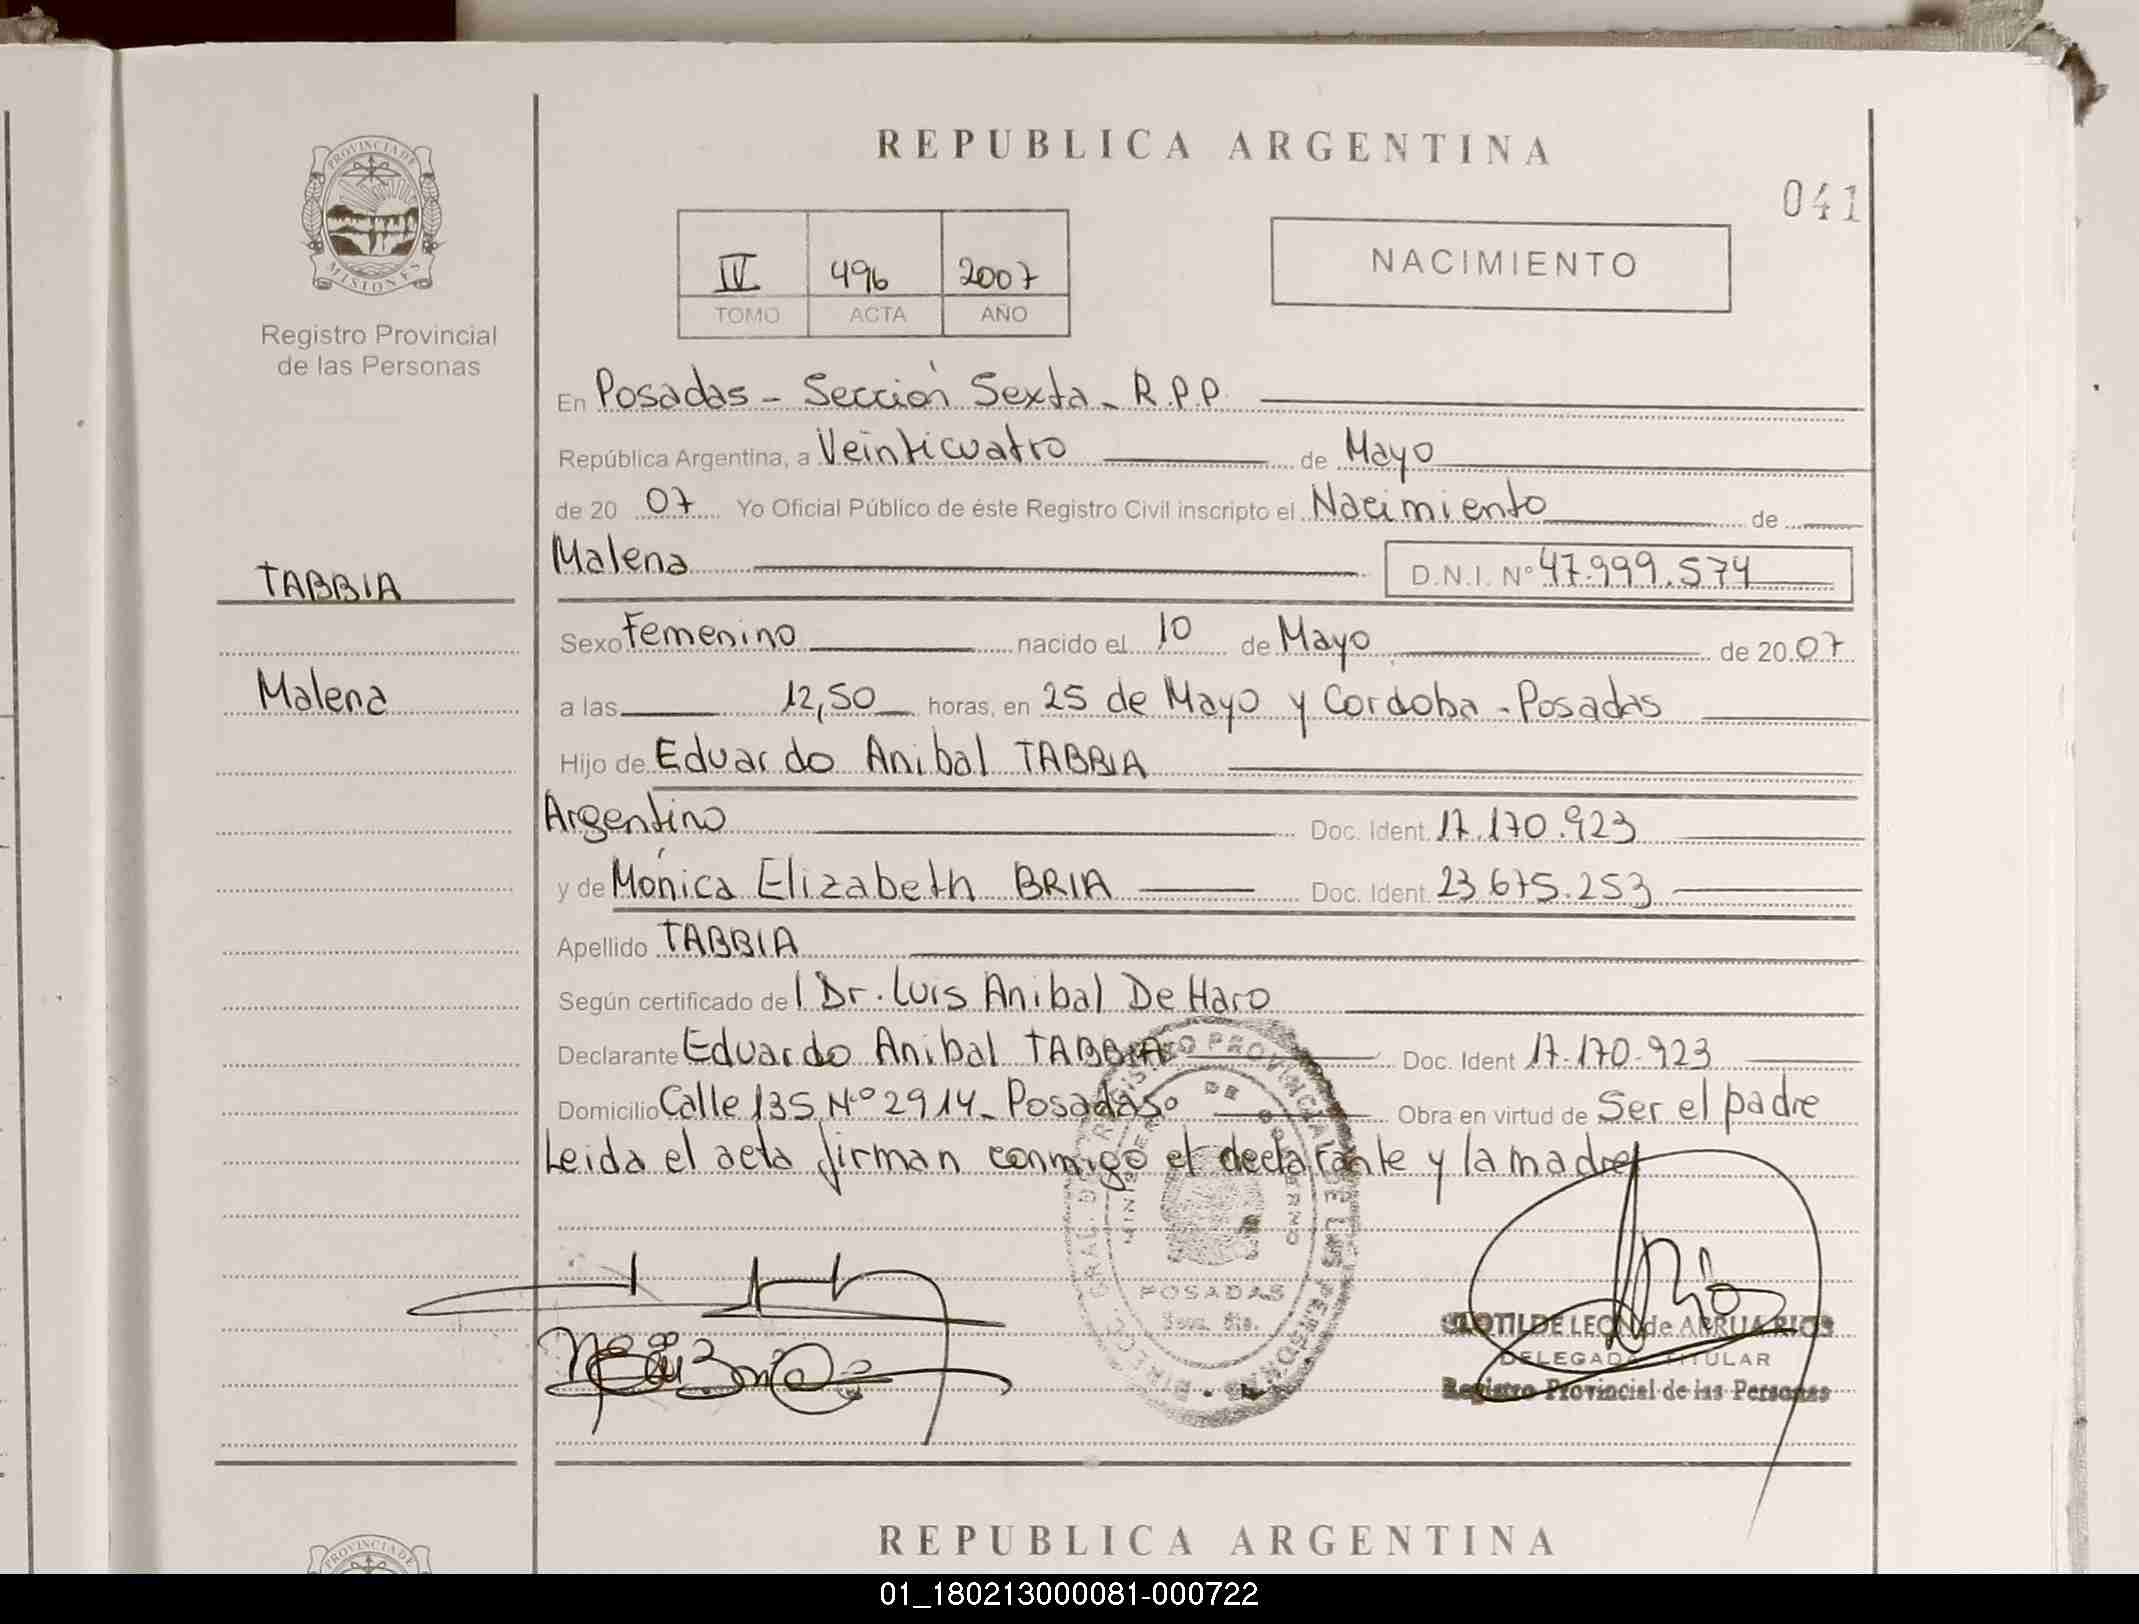 PROVINCIA DE
MISIONES
Registro Provincial
de las Personas
TABBIA
Malena
REPUBLICA ARGENTINA
041
IV 496 2007
TOMO ACTA AÑO
NACIMIENTO
En Posadas - Sección Sexta - R.P.P.
República Argentina, a Veinticuatro de Mayo
de 20 07 Yo Oficial Público de éste Registro Civil inscripto el Nacimiento de
Malena D.N.I. Nº 47.999.574
Sexo Femenino nacido el 10 de Mayo de 20 07
a las 12,50 horas, en 25 de Mayo y Cordoba - Posadas
Hijo de Eduardo Anibal TABBIA
Argentino Doc. Ident. 17.170.923
y de Mónica Elizabeth BRIA Doc. Ident. 23.675.253
Apellido TABBIA
Según certificado del Dr. Luis Anibal De Haro
Declarante Eduardo Anibal TABBIA Doc. Ident 17.170.923
Domicilio Calle 135 Nº 2914 - Posadas Obra en virtud de Ser el padre
Leida el acta firman conmigo el declarante y la madre
REGISTRO PROVINCIAL DE LAS PERSONAS
MINISTERIO DE GOBIERNO
POSADAS
CLOTILDE LEON de ARRUA RIOS
DELEGADA TITULAR
Registro Provincial de las Personas
PROVINCIA DE
REPUBLICA ARGENTINA
01_180213000081-000722